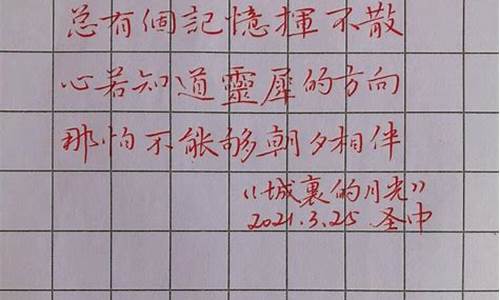 总有個記憶揮不散
心若知道靈犀的方向
那怕不能够朝夕相伴
“城裏的月光”
2021.3.25 圣中